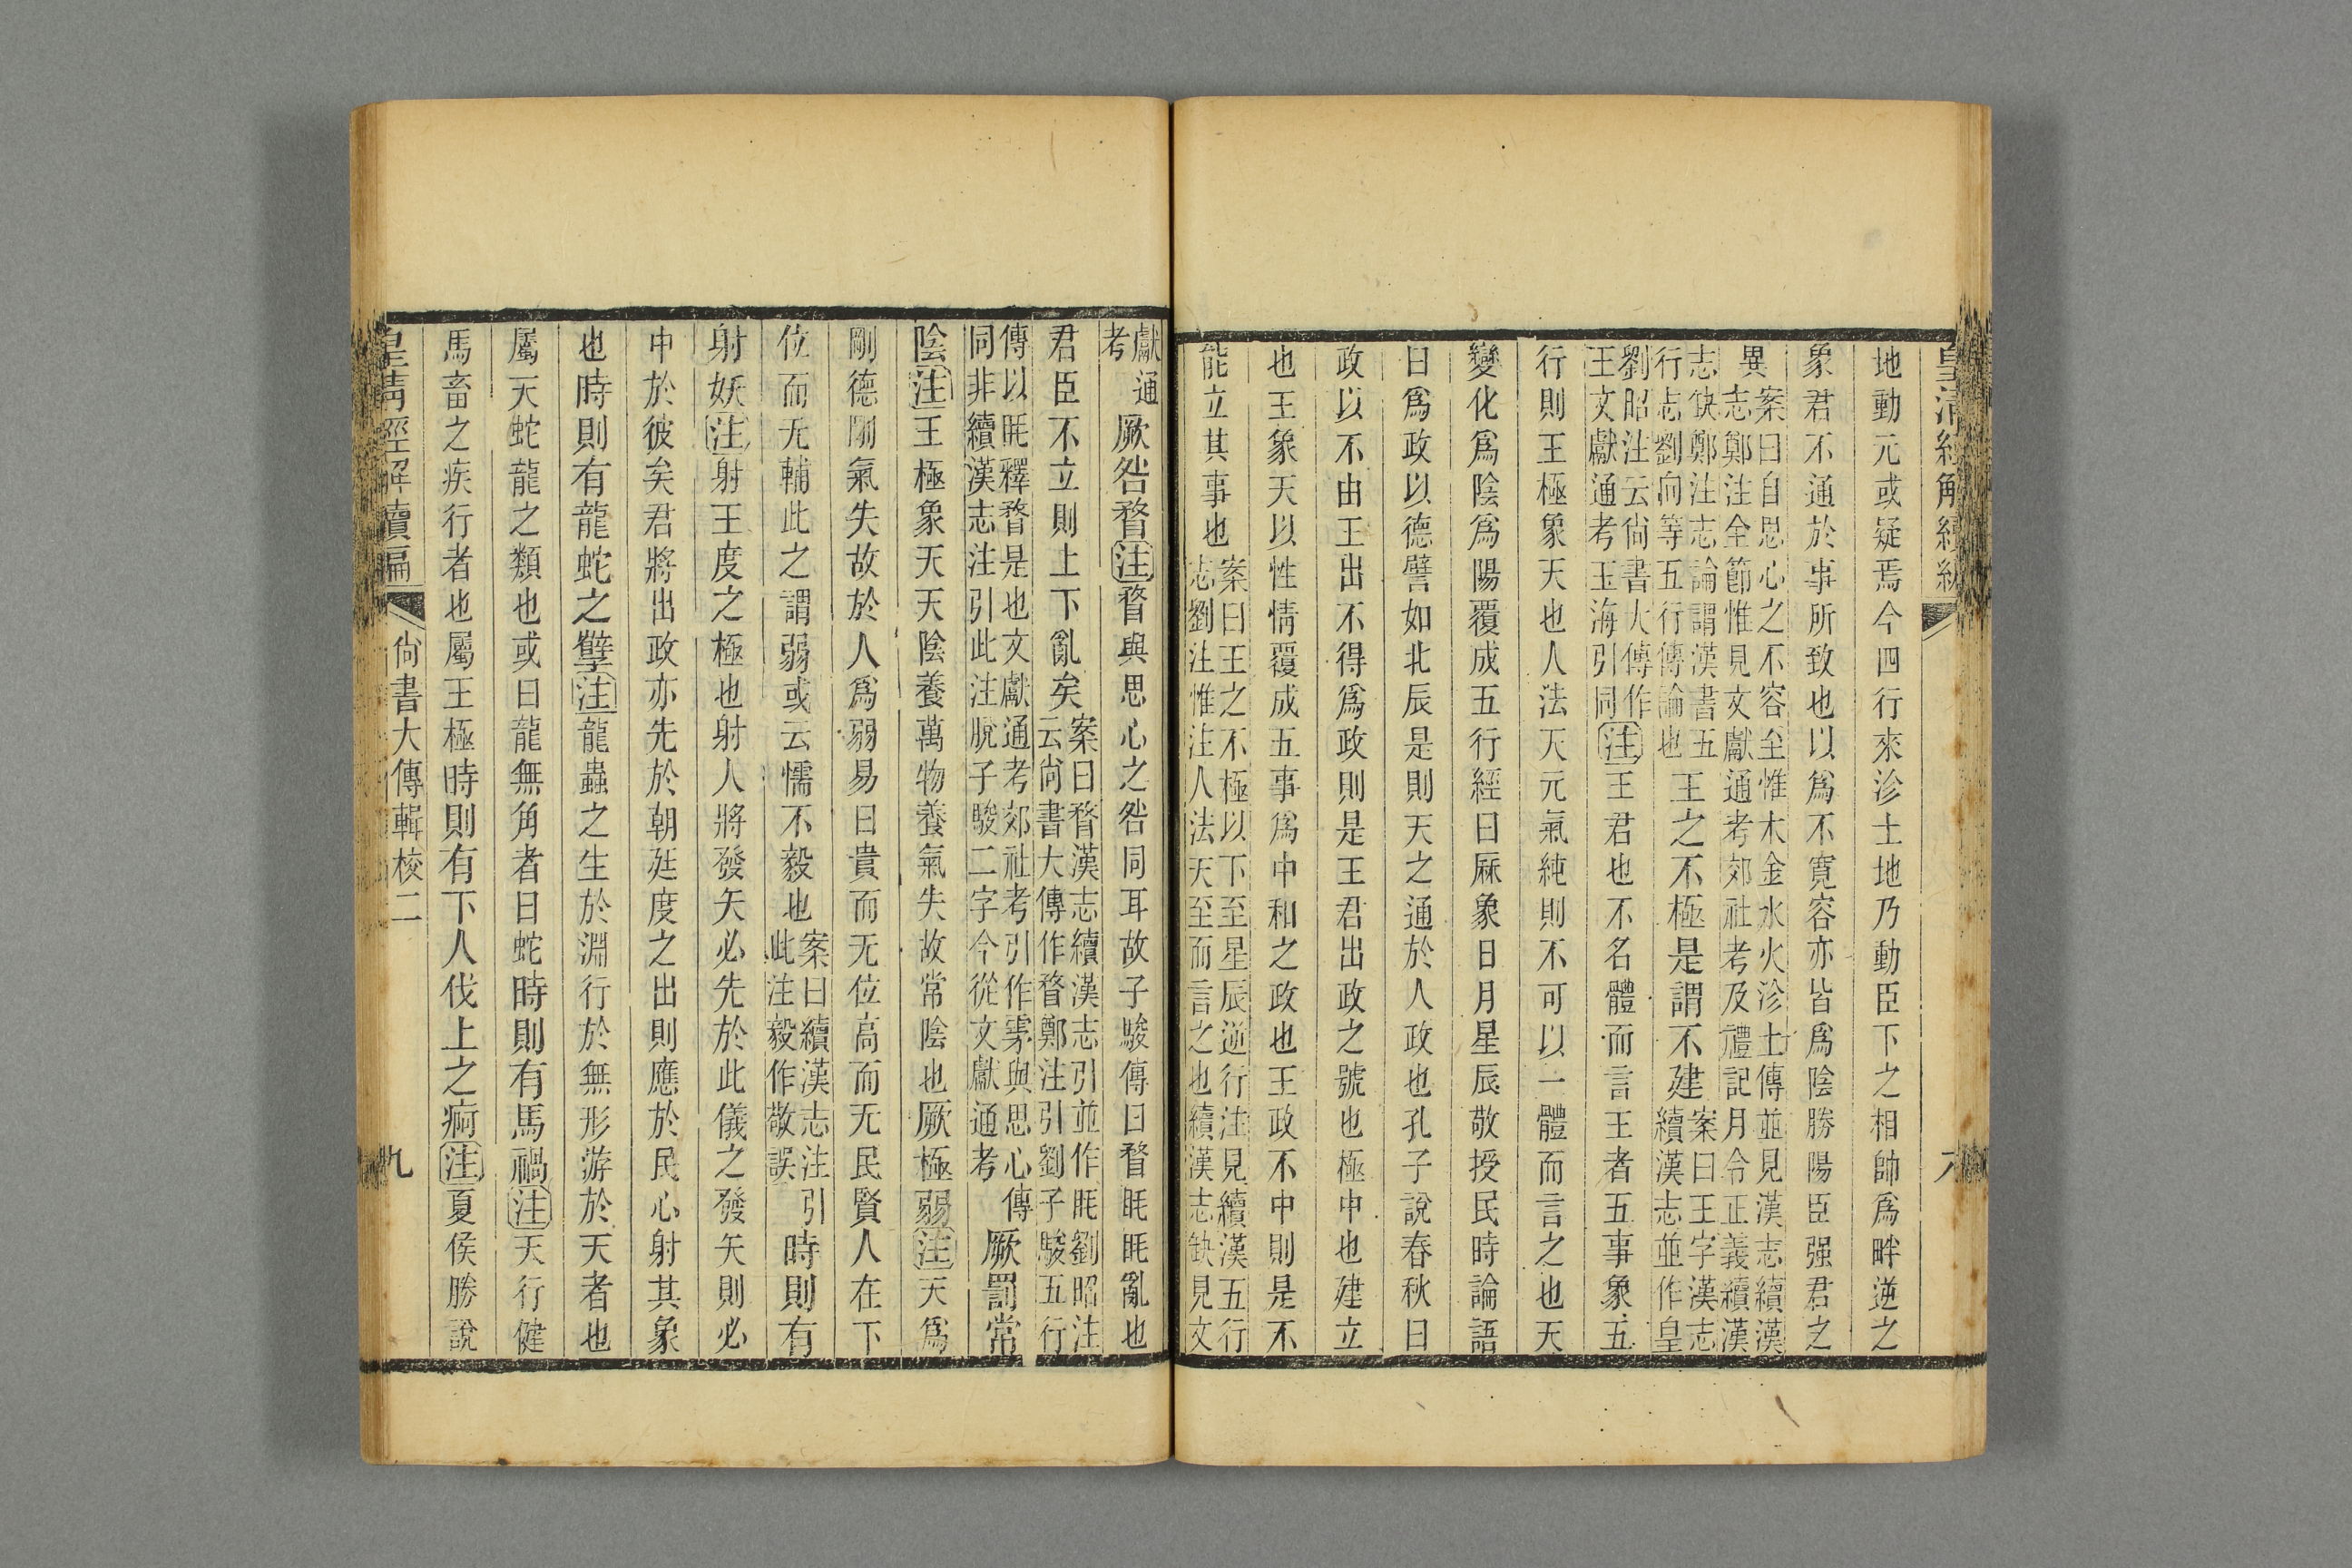 皇清經解續編
地動元或疑焉今四行來沴土地乃動臣下之相帥爲畔逆之
象君不通於事所致也以爲不寬容亦皆爲陰勝陽臣强君之
異案曰自思心之不容至惟木金水火沴土傳並見漢志續漢
志鄭注全節惟見文獻通考郊社考及禮記月令正義續漢
志缺鄭注志論謂漢書五
行志劉向等五行傳論也王之不極是謂不建案曰王字漢志
續漢志並作皇
劉昭注云尙書大傳作
王文獻通考玉海引同注王君也不名體而言王者五事象五
行則王極象天也人法天元氣純則不可以一體而言之也天
變化爲陰爲陽覆成五行經曰厤象日月星辰敬授民時論語
曰爲政以德譬如北辰是則天之通於人政也孔子說春秋曰
政以不由王出不得爲政則是王君出政之號也極中也建立
也王象天以性情覆成五事爲中和之政也王政不中則是不
能立其事也案曰王之不極以下至星辰逆行注見續漢五行
志劉注惟注人法天至而言之也續漢志缺見文
獻通
考厥咎瞀注瞀與思心之咎同耳故子駿傳曰瞀眊眊亂也
君臣不立則上下亂矣案曰瞀漢志續漢志引並作眊劉昭注
云尙書大傳作瞀鄭注引劉子駿五行
傳以眊釋瞀是也文獻通考郊社考引作雺與思心傳
同非續漢志注引此注脫子駿二字今從文獻通考厥罰常
陰注王極象天天陰養萬物養氣失故常陰也厥極弱注天爲
剛德剛氣失故於人爲弱易曰貴而无位高而无民賢人在下
位而无輔此之謂弱或云懦不毅也案曰續漢志注引
此注毅作敬誤時則有
射妖注射王度之極也射人將發矢必先於此儀之發矢則必
中於彼矣君將出政亦先於朝廷度之出則應於民心射其象
也時則有龍蛇之孼注龍蟲之生於淵行於無形游於天者也
屬天蛇龍之類也或曰龍無角者曰蛇時則有馬禍注天行健
馬畜之疾行者也屬王極時則有下人伐上之痾注夏侯勝說
皇淸經解續編
尙書大傳輯校二
九